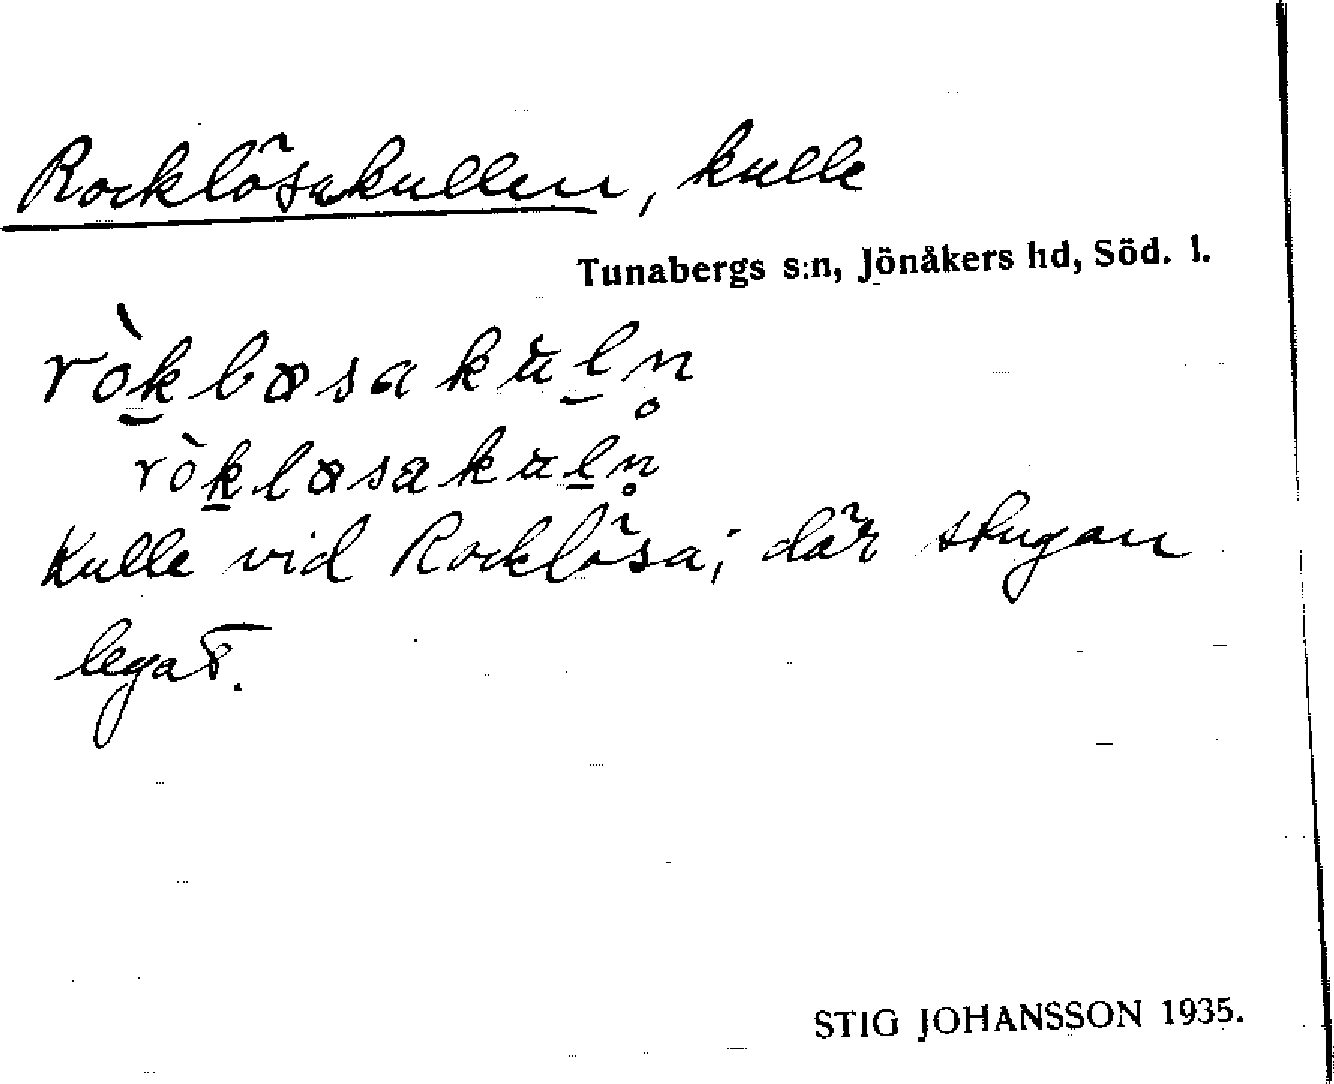 Rocklösakullen, kulle
Tunabergs s:n, Jönåkers hd, Söd. l.
ròk̲løsakul̲n̥
ròk̲løsakul̲n̥
Kulle vid Rocklösa; där stugan
legat.
STIG JOHANSSON 1935.